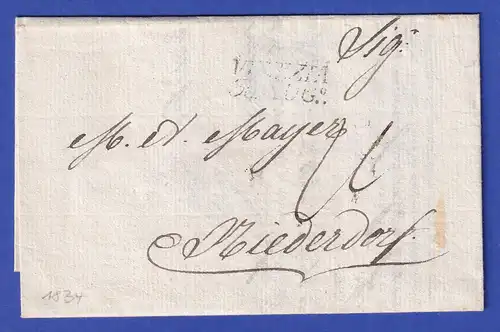 Sigr.
VENEZIA
LUG.º
M. A. Mayer
Niederdorf.
1834